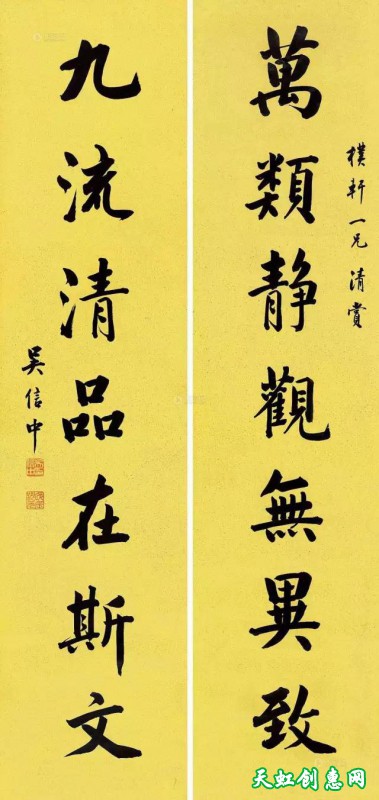 樸軒一兄清賞
萬類静觀無異致
九流清品在斯文
吳信中
天虹创惠网